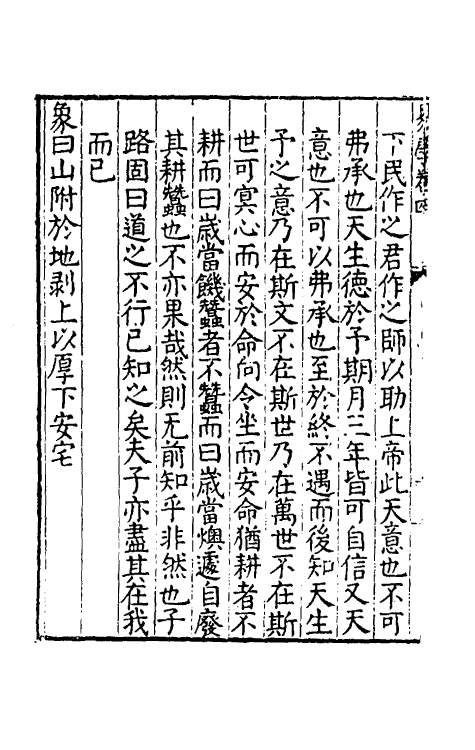 下民作之君作之師以助上帝此天意也不可
弗承也天生德於予期月三年皆可自信又天
意也不可以弗承也至於終不遇而後知天生
予之意乃在斯文不在斯世乃在萬世不在斯
世可冥心而安於命向令坐而安命猶耕者不
耕而曰歲當饑蠶者不蠶而曰歲當燠遽自廢
其耕蠶也不亦果哉然則无前知乎非然也子
路固曰道之不行已知之矣夫子亦盡其在我
而已
象曰山附於地剥上以厚下安宅